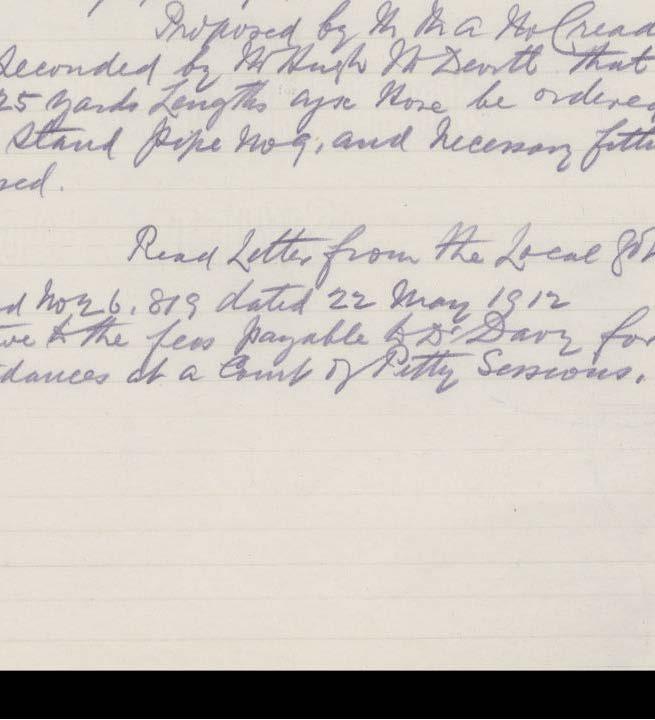 Proposed by Mr M A McCread
Seconded by Mr Hugh McDevitt that
25 yards Lengths Hose be ordered
Stand Pipe No 9, and necessary fitti
sed.
Read Letter from the Local Gov
d No 26.819 dated 22 May 1912
ive to the fees payable to Dr Davy for
dances at a Court of Petty Sessions.